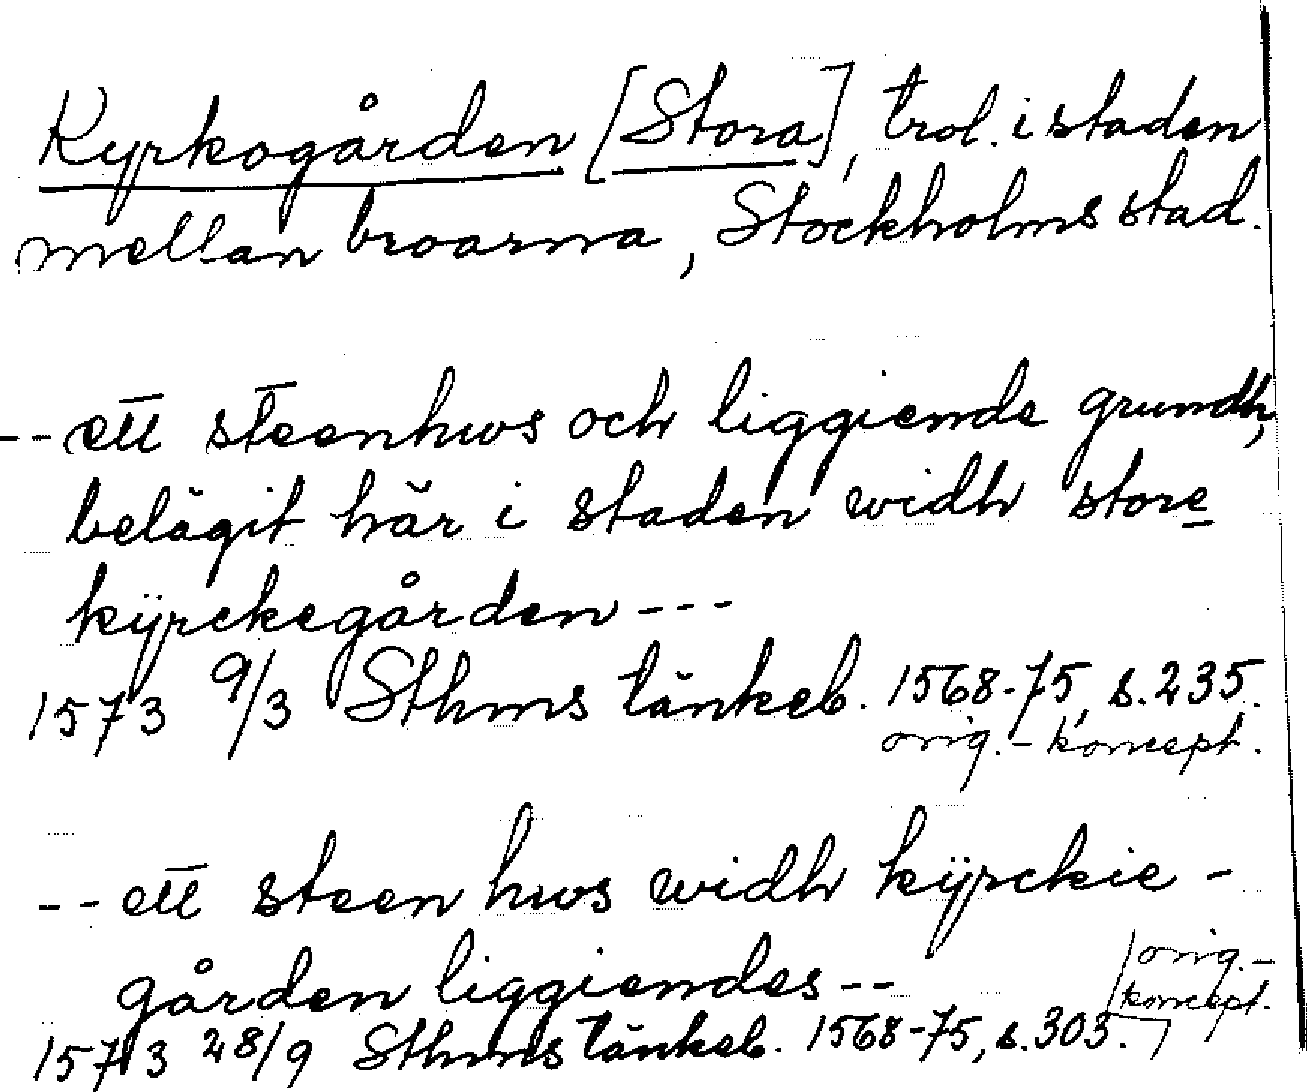 Kyrkogården [Stora], trol. i staden
mellan broarna, Stockholms stad.
-- ett steenhws och liggiende grundh,
belägit här i staden widh store
kÿrckegården ---
1573 9/3 Sthms tänkeb. 1568-75, s. 235.
orig.-koncept.
-- ett steen hws widh kÿrckie-
gården liggiendes --
1573 28/9 Sthms tänkeb. 1568-75, s. 303. [orig.-
koncept.]